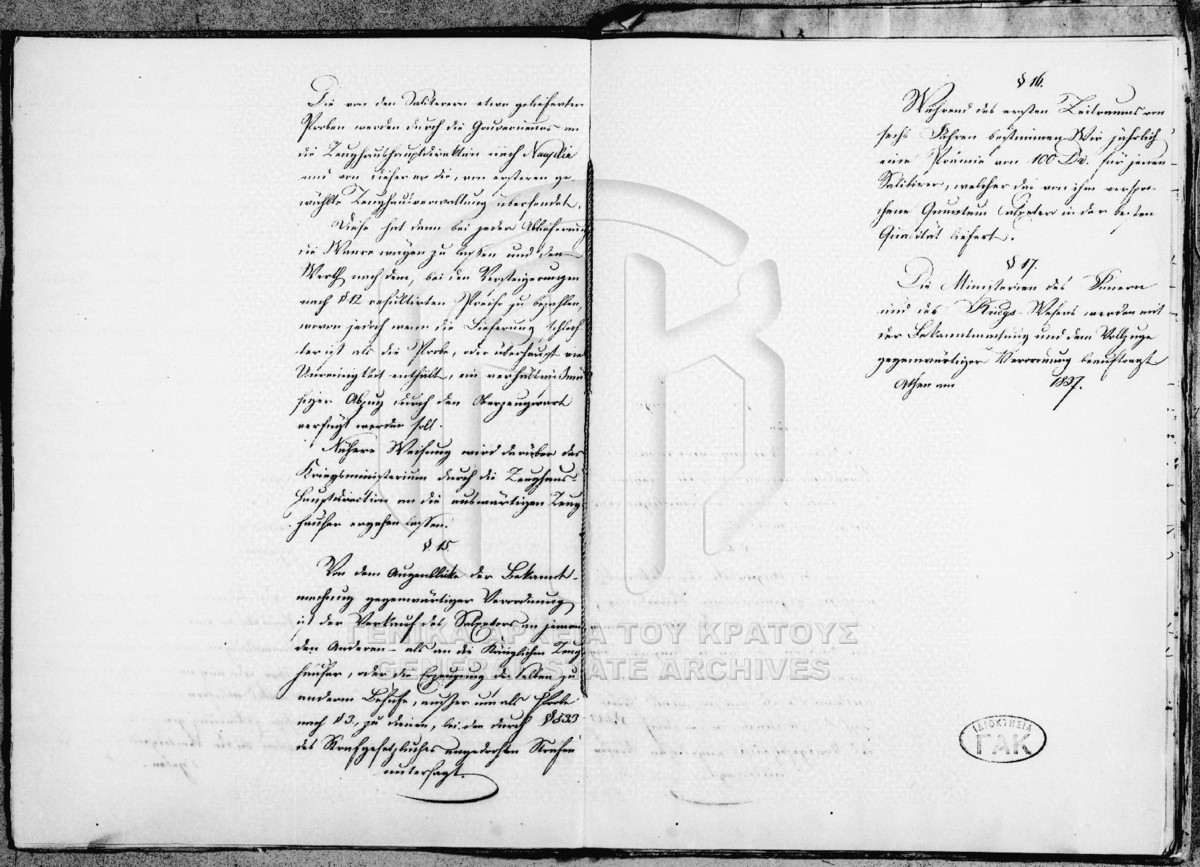 Die von den Saliterern etwa gelieferten
Proben werden durch die Gouverneurs an
die Zeughaushauptdirektion nach Nauplia
und von dieser an die, von ersteren ge-
wählte Zeughausverwaltung übersendet.
Diese hat dann bei jeder Ablieferung
die Waare wägen zu lassen und den
Werth nach dem, bei den Versteigerungen
nach § 12 resultirten Preise zu bezahlen,
wovon jedoch wenn die Lieferung schlech-
ter ist als die Probe, oder überhaupt viel
Unreinigkeit enthält, ein verhältnißmä-
siger Abzug durch den Oberzeugwart
verfügt werden soll.
Nähere Weisung wird darüber das
Kriegsministerium durch die Zeughaus-
Hauptdirection an die auswärtigen Zeug-
häuser ergehen lassen.
§. 15.
Von dem Augenblicke der Bekannt-
machung gegenwärtiger Verordnung
ist der Verkauf des Salpeters an jeman-
den Anderen – als an die Königlichen Zeug-
häuser, oder die Erzeugung desselben zu
anderm Behufe, außer um als Probe
nach § 3, zu dienen, bei den durch § 533
des Strafgesetzbuches angedrohten Strafen
untersagt.
§ 16.
Während des ersten Zeitraums von
sechs Jahren bestimmen Wir jährlich
eine Prämie von 100 Dr. für jenen
Salitrer, welcher das von ihm verspro-
chene Quantum Salpeter in der besten
Qualität liefert.
§ 17.
Die Ministerien des Innern
und des Kriegs-Wesens werden mit
der Bekanntmachung und dem Vollzuge
gegenwärtiger Verordnung beauftragt
Athen am 1837.
ΓΕΝΙΚΑ ΑΡΧΕΙΑ ΤΟΥ ΚΡΑΤΟΥΣ
GENERAL STATE ARCHIVES
ΙΔΙΟΚΤΗΣΙΑ
ΓΑΚ